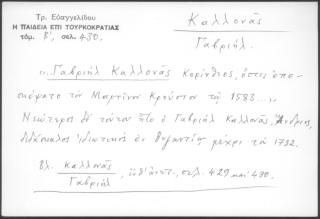 Τρ. Εὐαγγελίδου
Η ΠΑΙΔΕΙΑ ΕΠΙ ΤΟΥΡΚΟΚΡΑΤΙΑΣ
τόμ. Β', σελ. 430.
Καλλονᾶς
Γαβριήλ.
"Γαβριήλ Καλλονᾶς Κορίνθιος, ὅστις ἐπε-
σκέψατο τὸν Μαρτῖνο Κρούσιον τῷ 1583...
Νεώτερος δὲ τούτου ἦτο ὁ Γαβριήλ Καλλονᾶς, Ἄνδριος,
διδάσκαλος ἰδιωτικὸς ἐν Βυζαντίῳ μέχρι τοῦ 1732.
Βλ. Καλλονᾶς
Γαβριήλ, σελ. 429 καὶ 430.